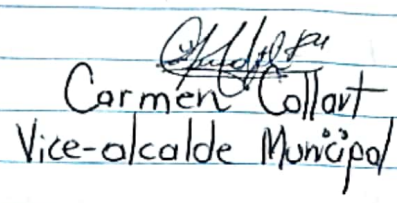 Carmen Collart
Vice-alcalde Municipal